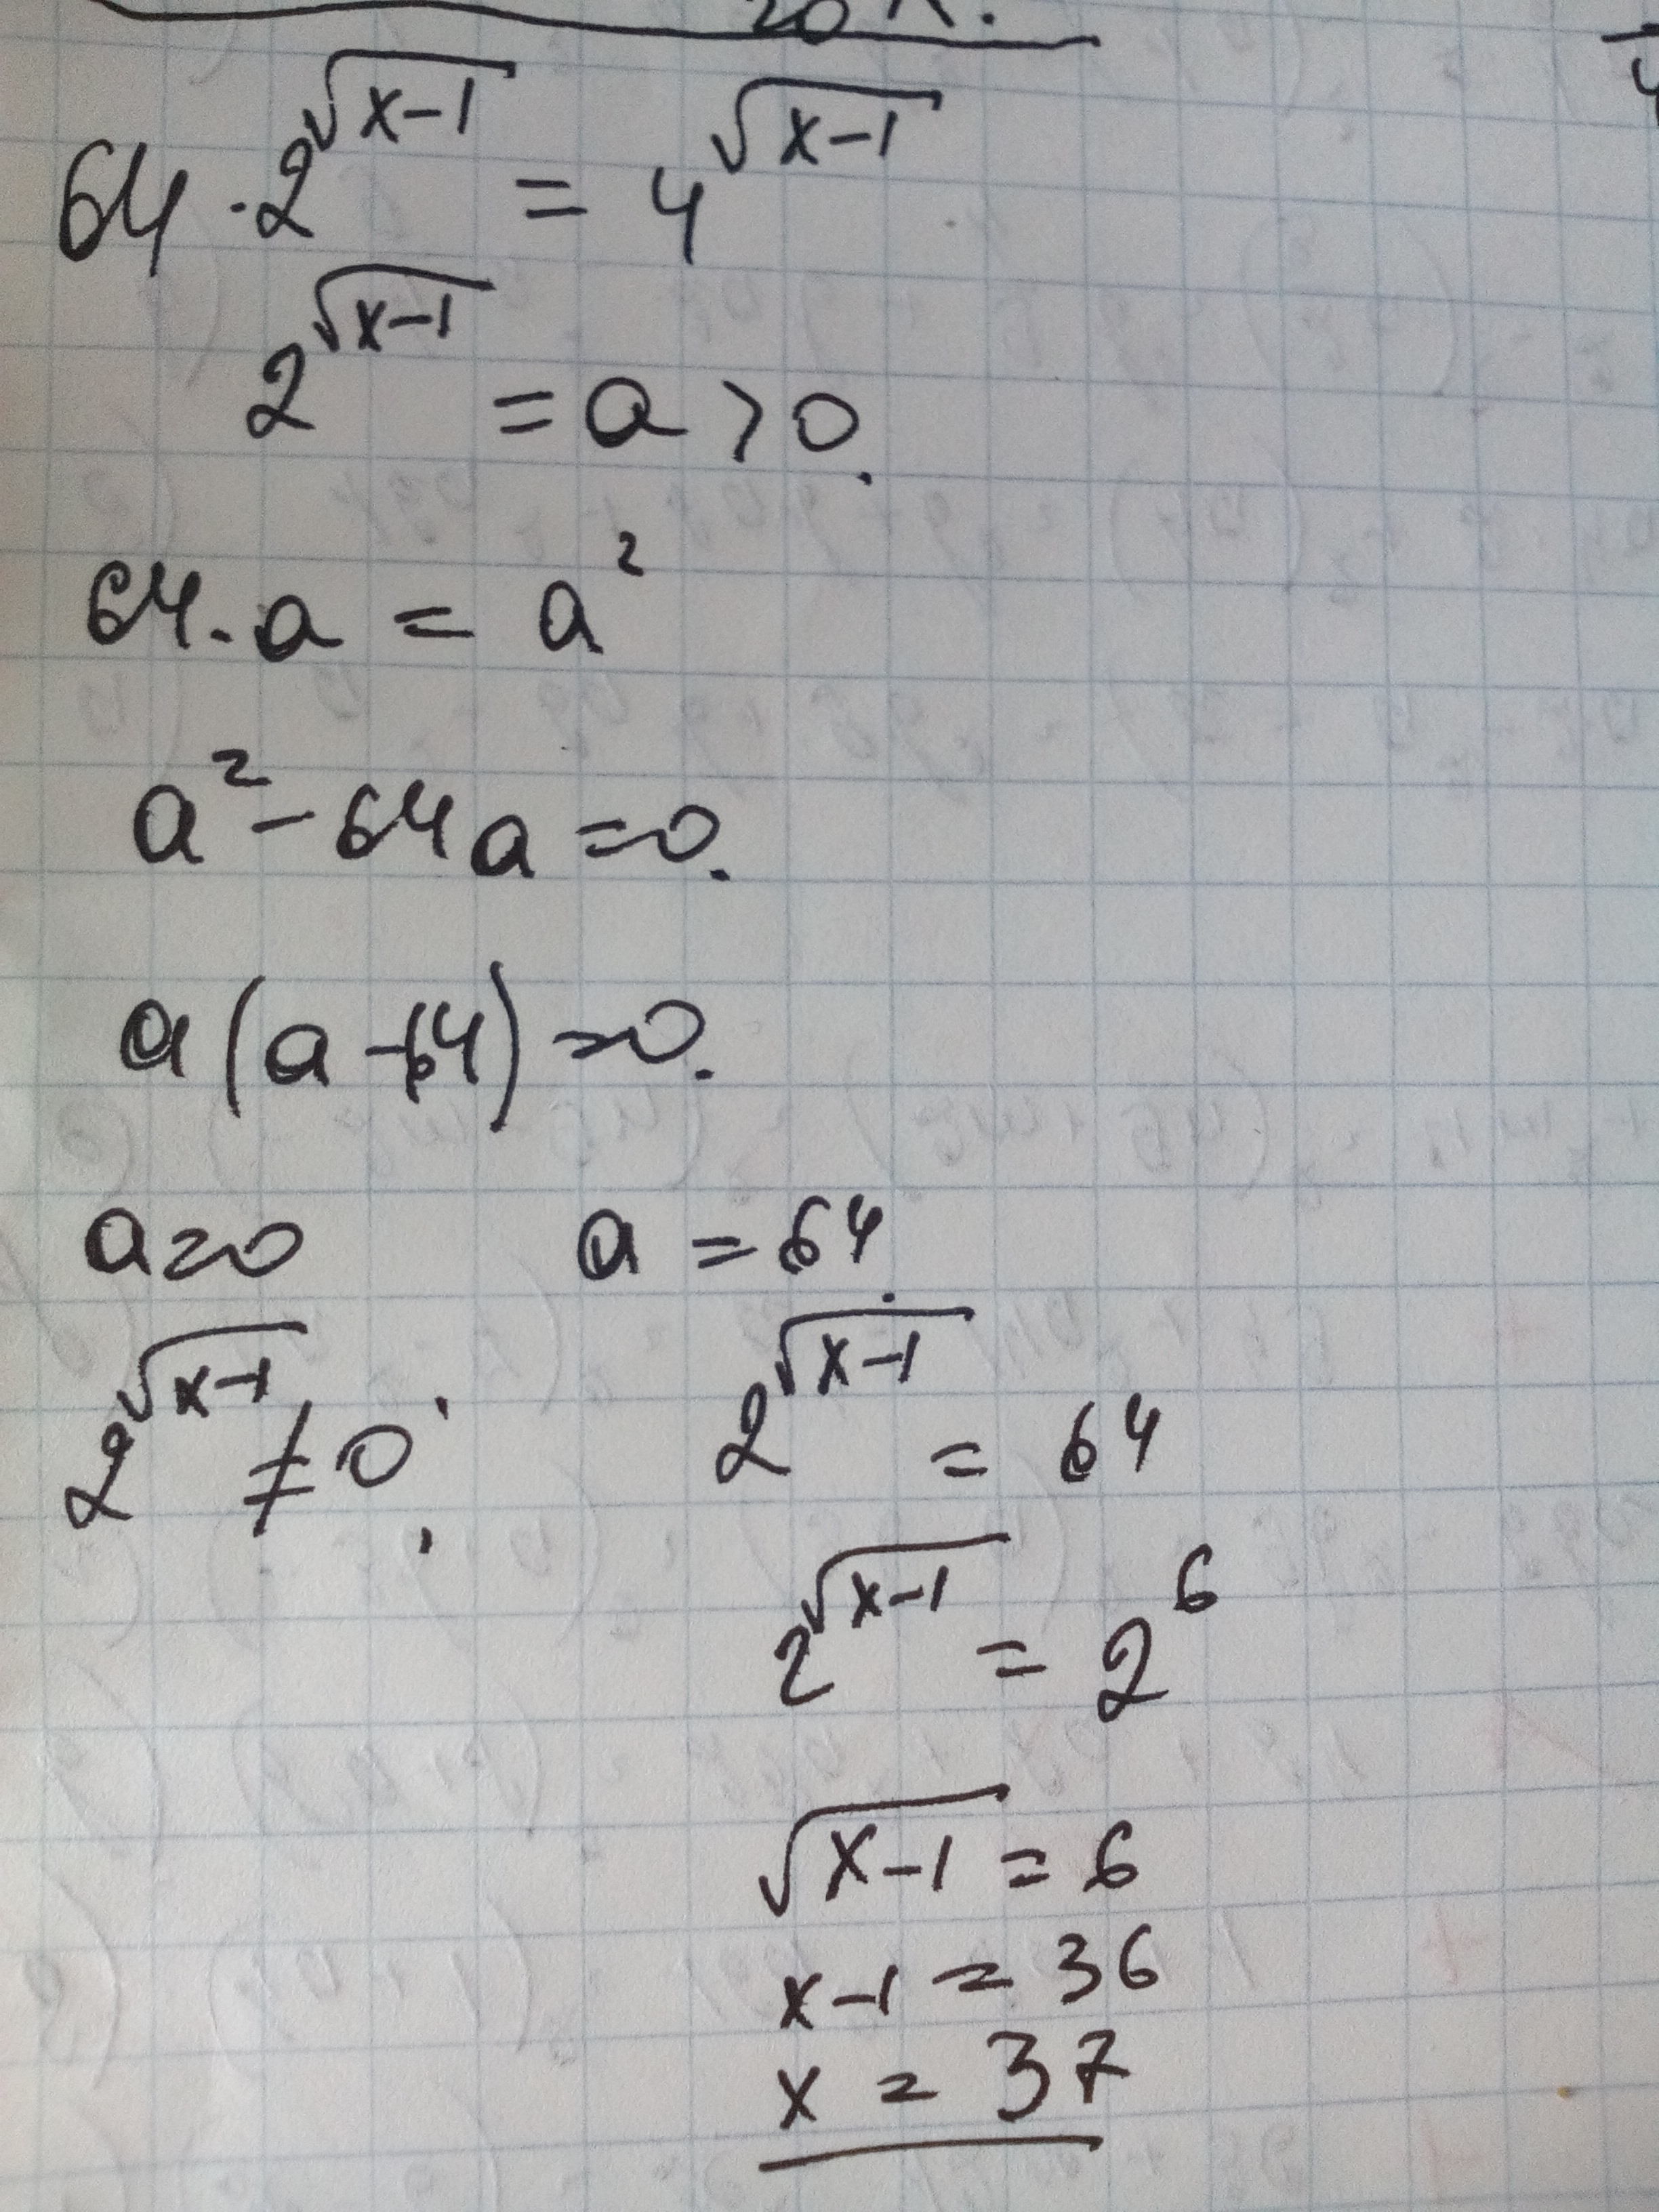 64 · 2^√(x-1) = 4^√(x-1)
2^√(x-1) = a > 0.
64 · a = a²
a² - 64a = 0.
a(a - 64) = 0.
a = 0    a = 64.
2^√(x-1) ≠ 0;    2^√(x-1) = 64
2^√(x-1) = 2⁶
√(x-1) = 6
x - 1 = 36
x = 37